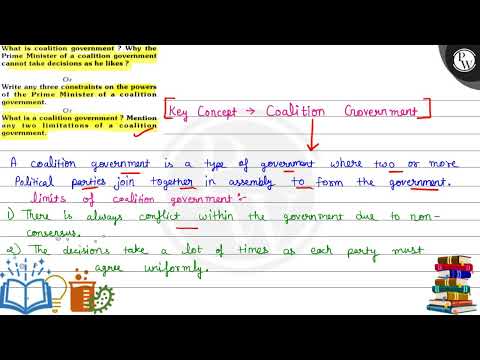 What is coalition government ? Why the
Prime Minister of a coalition government
cannot take decisions as he likes ?
Or
Write any three constraints on the powers
of the Prime Minister of a coalition
government.
Or
What is a coalition government ? Mention
any two limitations of a coalition
government.
[Key Concept → Coalition Government]
A coalition government is a type of government where two or more
Political parties join together in assembly to form the government.
limits of coalition government :-
1) There is always conflict within the government due to non-
consensus.
2) The decisions take a lot of times as each party must
agree uniformly.
PW